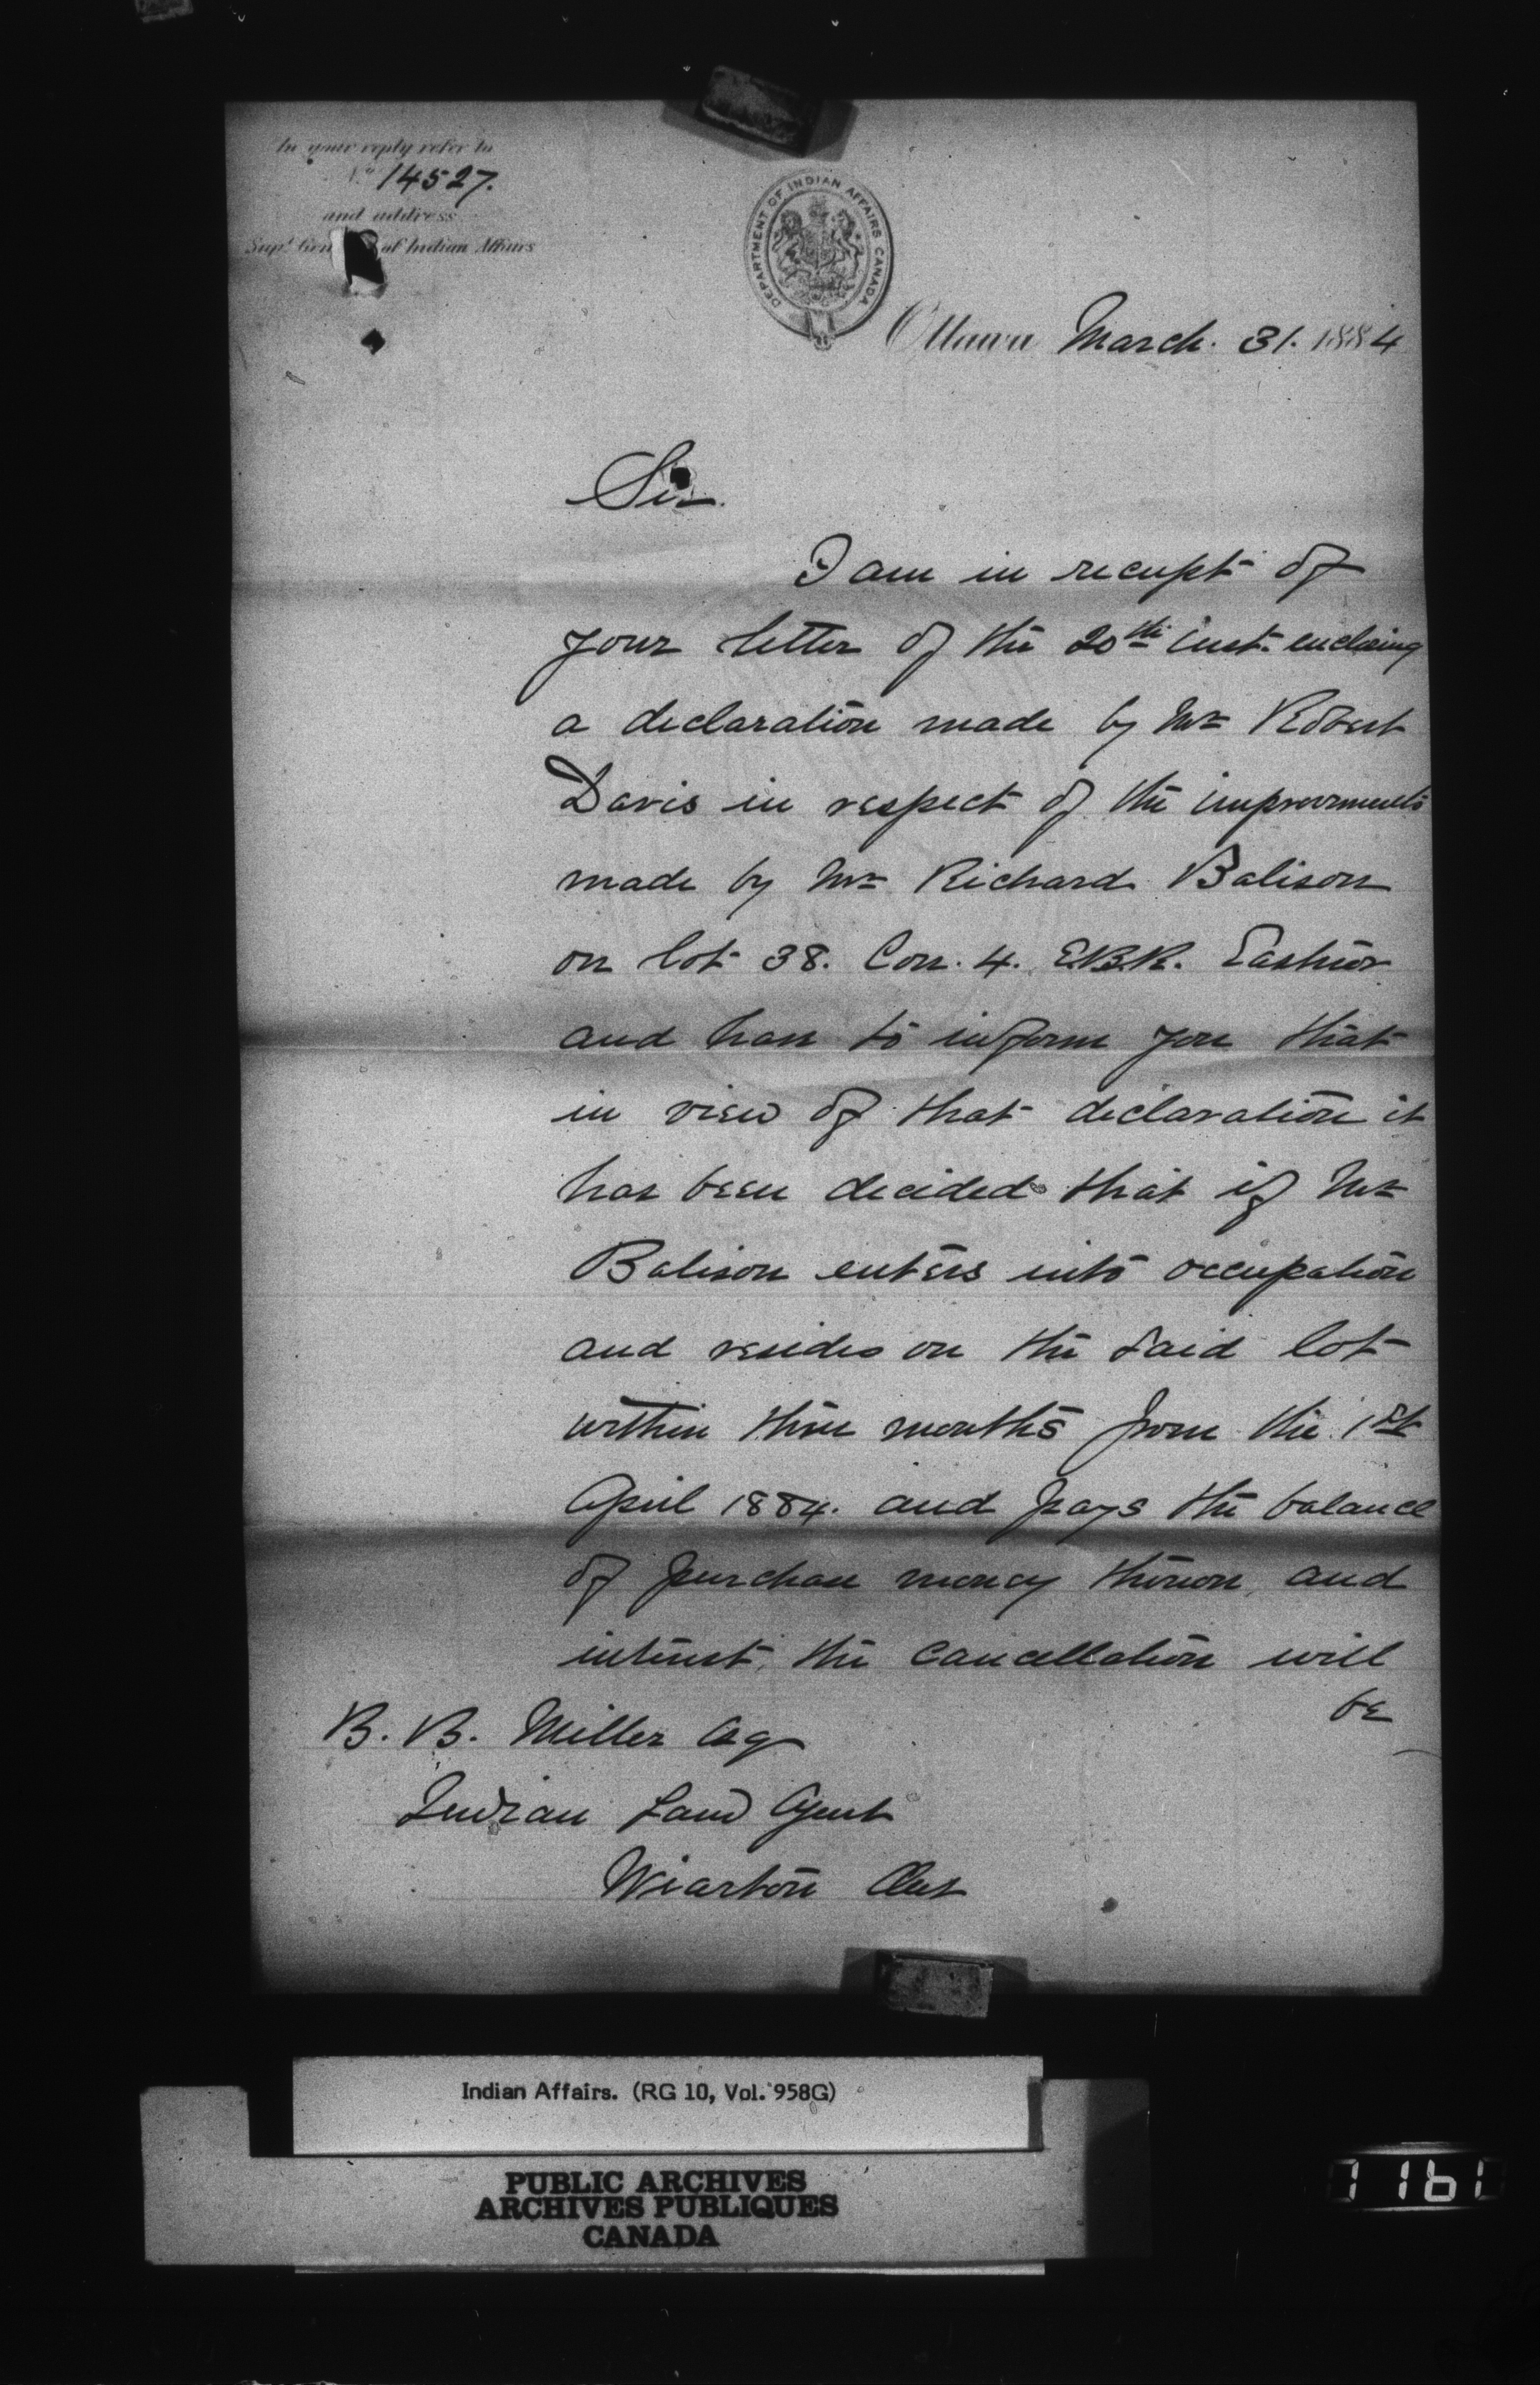 In your reply refer to
No 14527.
and address
Supt. Gen of Indian Affairs
DEPARTMENT OF INDIAN AFFAIRS CANADA
Ottawa March. 31. 1884
Sir.
I am in receipt of
your letter of the 20th inst. enclosing
a declaration made by Mr Robert
Davis in respect of the improvements
made by Mr Richard Balison
on lot 38. Con. 4. E.B.R. Eastnor
and have to inform you that
in view of that declaration it
has been decided that if Mr
Balison enters into occupation
and resides on the said lot
within three months from the 1st
April 1884. and pays the balance
of purchase money thereon, and
interest, the cancellation will
be
B. B. Miller Esq
Indian Land Agent
Wiarton Ont
Indian Affairs. (RG 10, Vol. 958G)
PUBLIC ARCHIVES
ARCHIVES PUBLIQUES
CANADA
1161